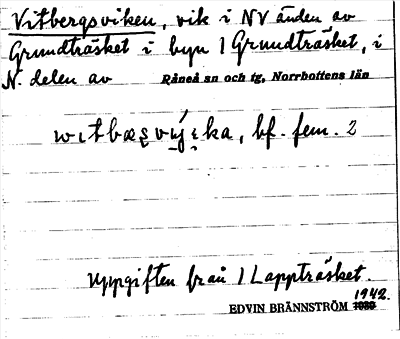 Vitbergsviken, vik i NV änden av
Grundträsket i byn 1 Grundträsket, i
N. delen av Råneå sn och tg, Norrbottens län
bf. fem. 2
Uppgiften från 1 Lappträsket.
1942.
EDVIN BRÄNNSTRÖM 1939